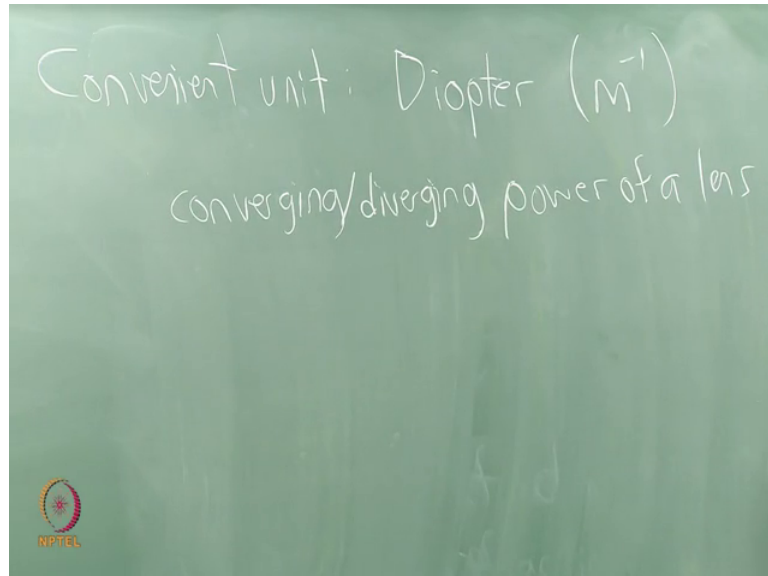 Convenient unit: Diopter (m⁻¹)
converging/diverging power of a lens
NPTEL